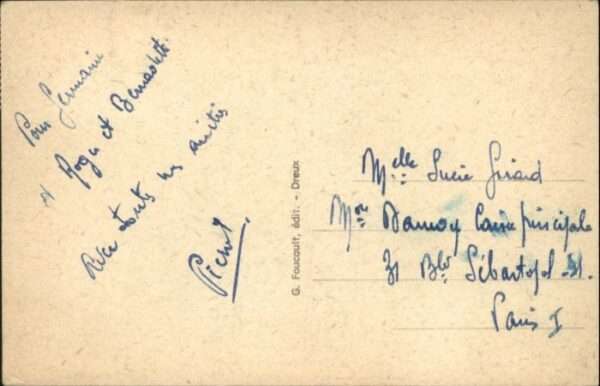 Pour Germaine
Roger et Bernadette
Avec toutes nos amitiés
Pichot.
G. Foucault, édit. - Dreux
Melle Lucie Girard
Mon Damoy Caisse principale
31 Bld Sébastopol - 31.
Paris I